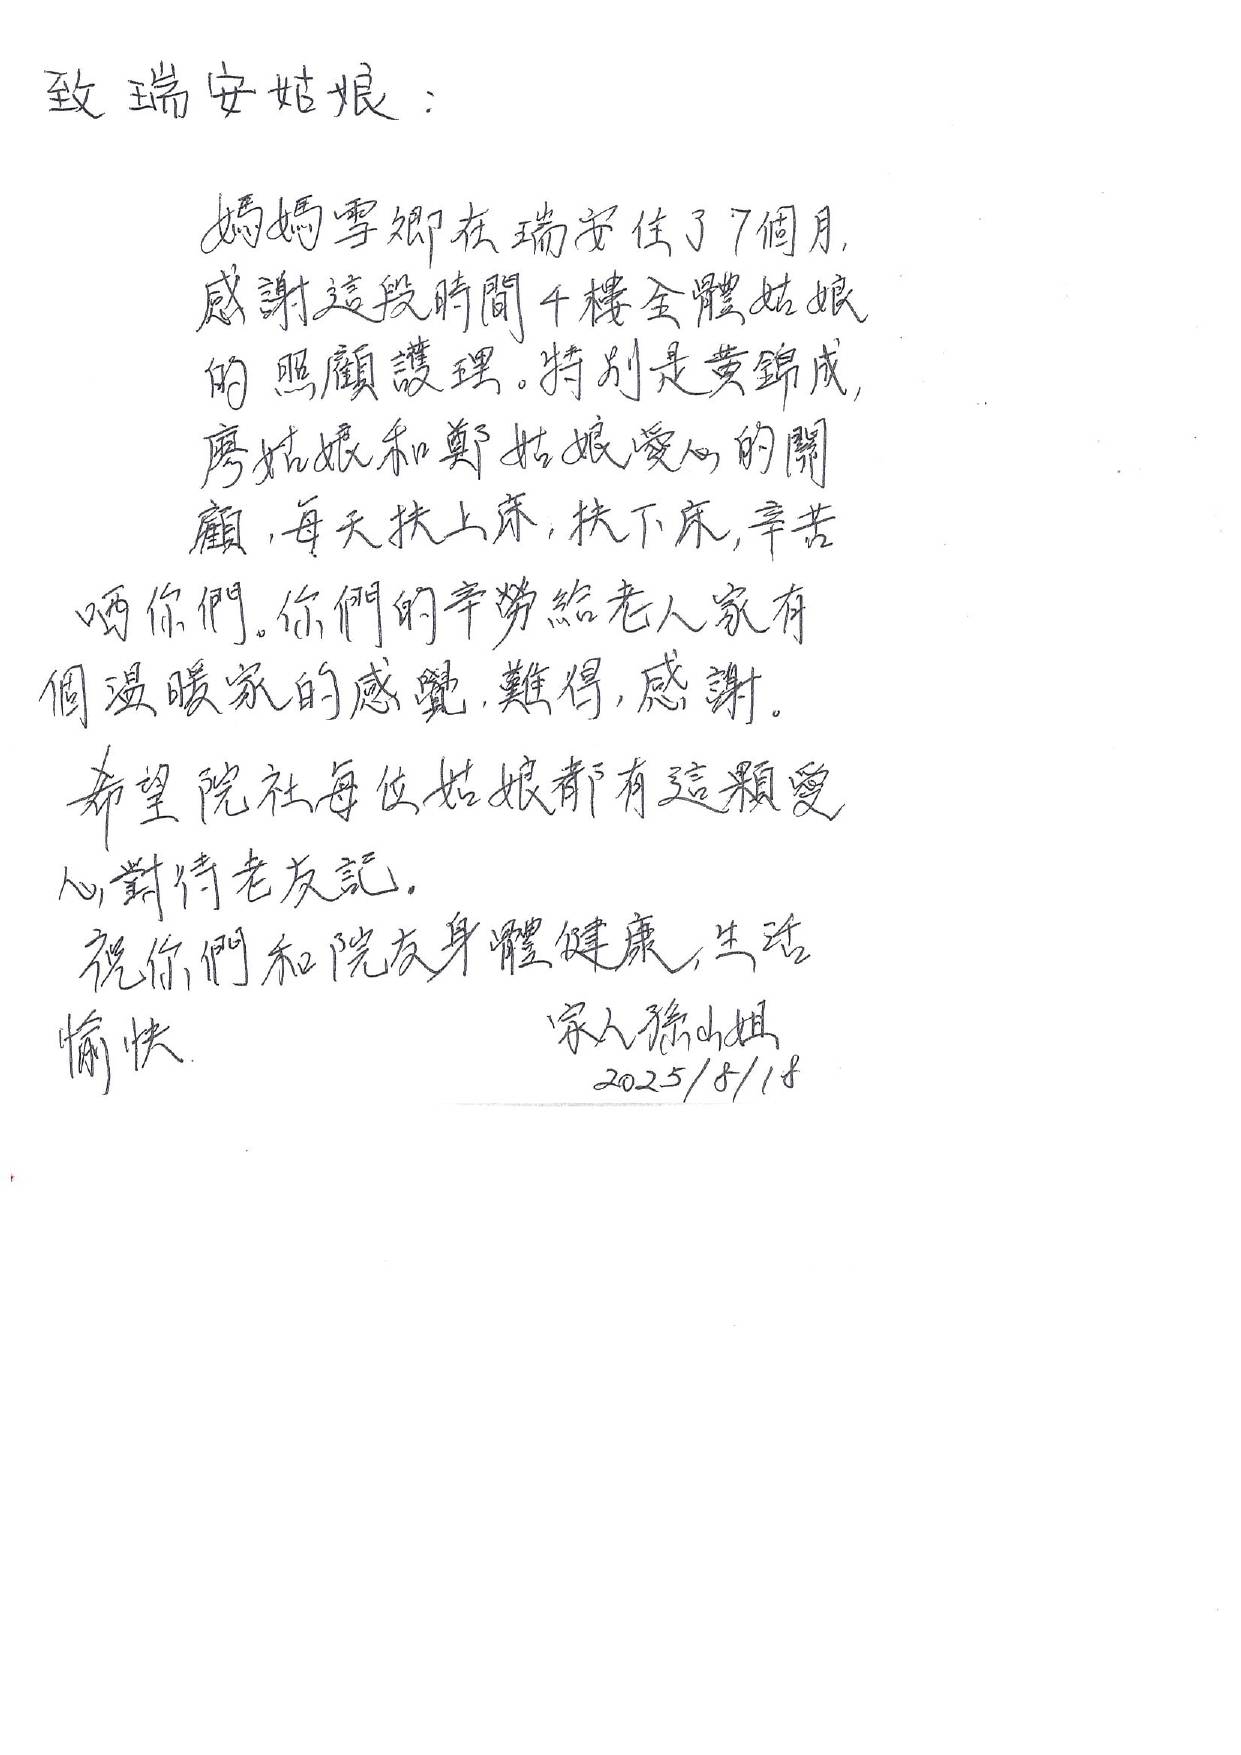 致瑞安姑娘：
媽媽雪卿在瑞安住了7個月，
感謝這段時間4樓全體姑娘
的照顧護理。特別是黄錦成，
廖姑娘和鄭姑娘愛心的關
顧，每天扶上床，扶下床，辛苦
哂你們。你們的辛勞給老人家有
個温暖家的感覺，難得，感謝。
希望院社每位姑娘都有這顆愛
心，對待老友記。
祝你們和院友身體健康，生活
愉快
家人孫山姐
2025/8/18